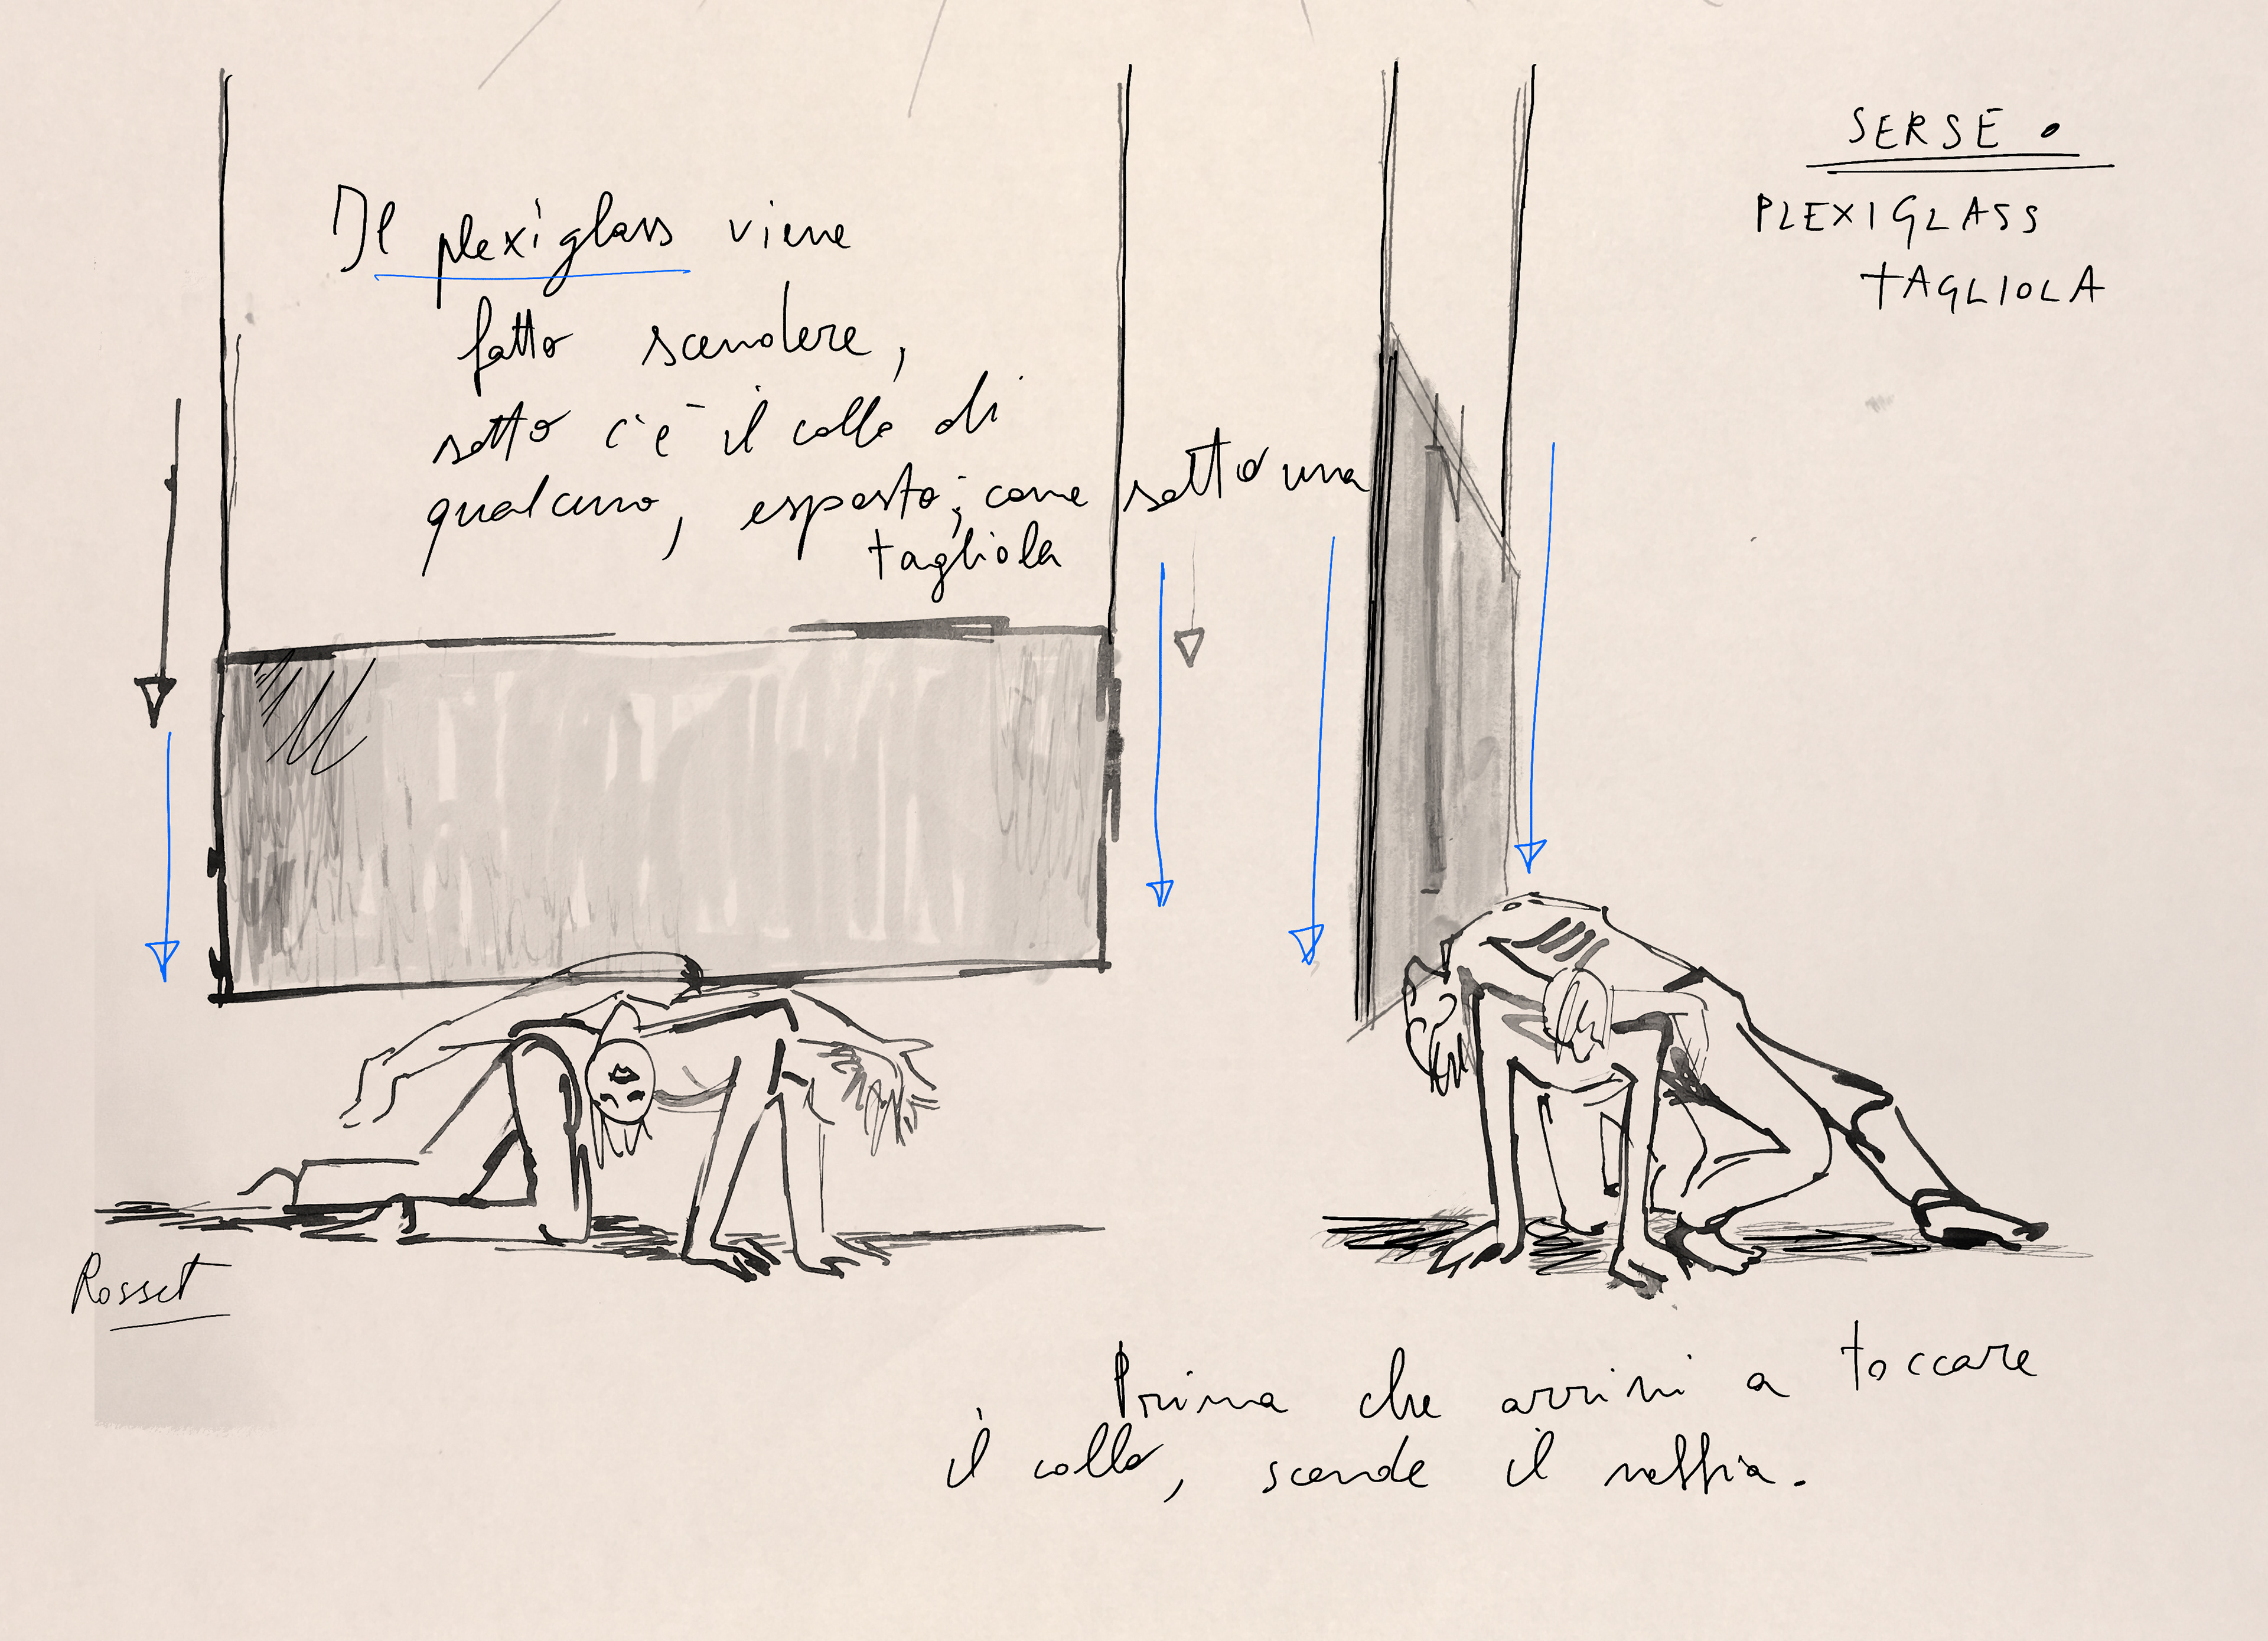 SERSE.
PLEXIGLASS
TAGLIOLA
Il plexiglass viene
fatto scendere,
sotto c'è il collo di
qualcuno, esposto; come sotto una
tagliola
Rosset
Prima che arrivi a toccare
il collo, scende il